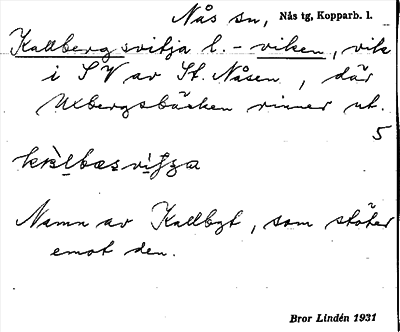 Nås sn, Nås tg, Kopparb. l.
Kallbergsvitja l. - viken, vik
i SV av St. Nåsen, där
Ulbergsbäcken rinner ut.
5
Namn av Kallbgt, som stöter
emot den.
Bror Lindén 1931